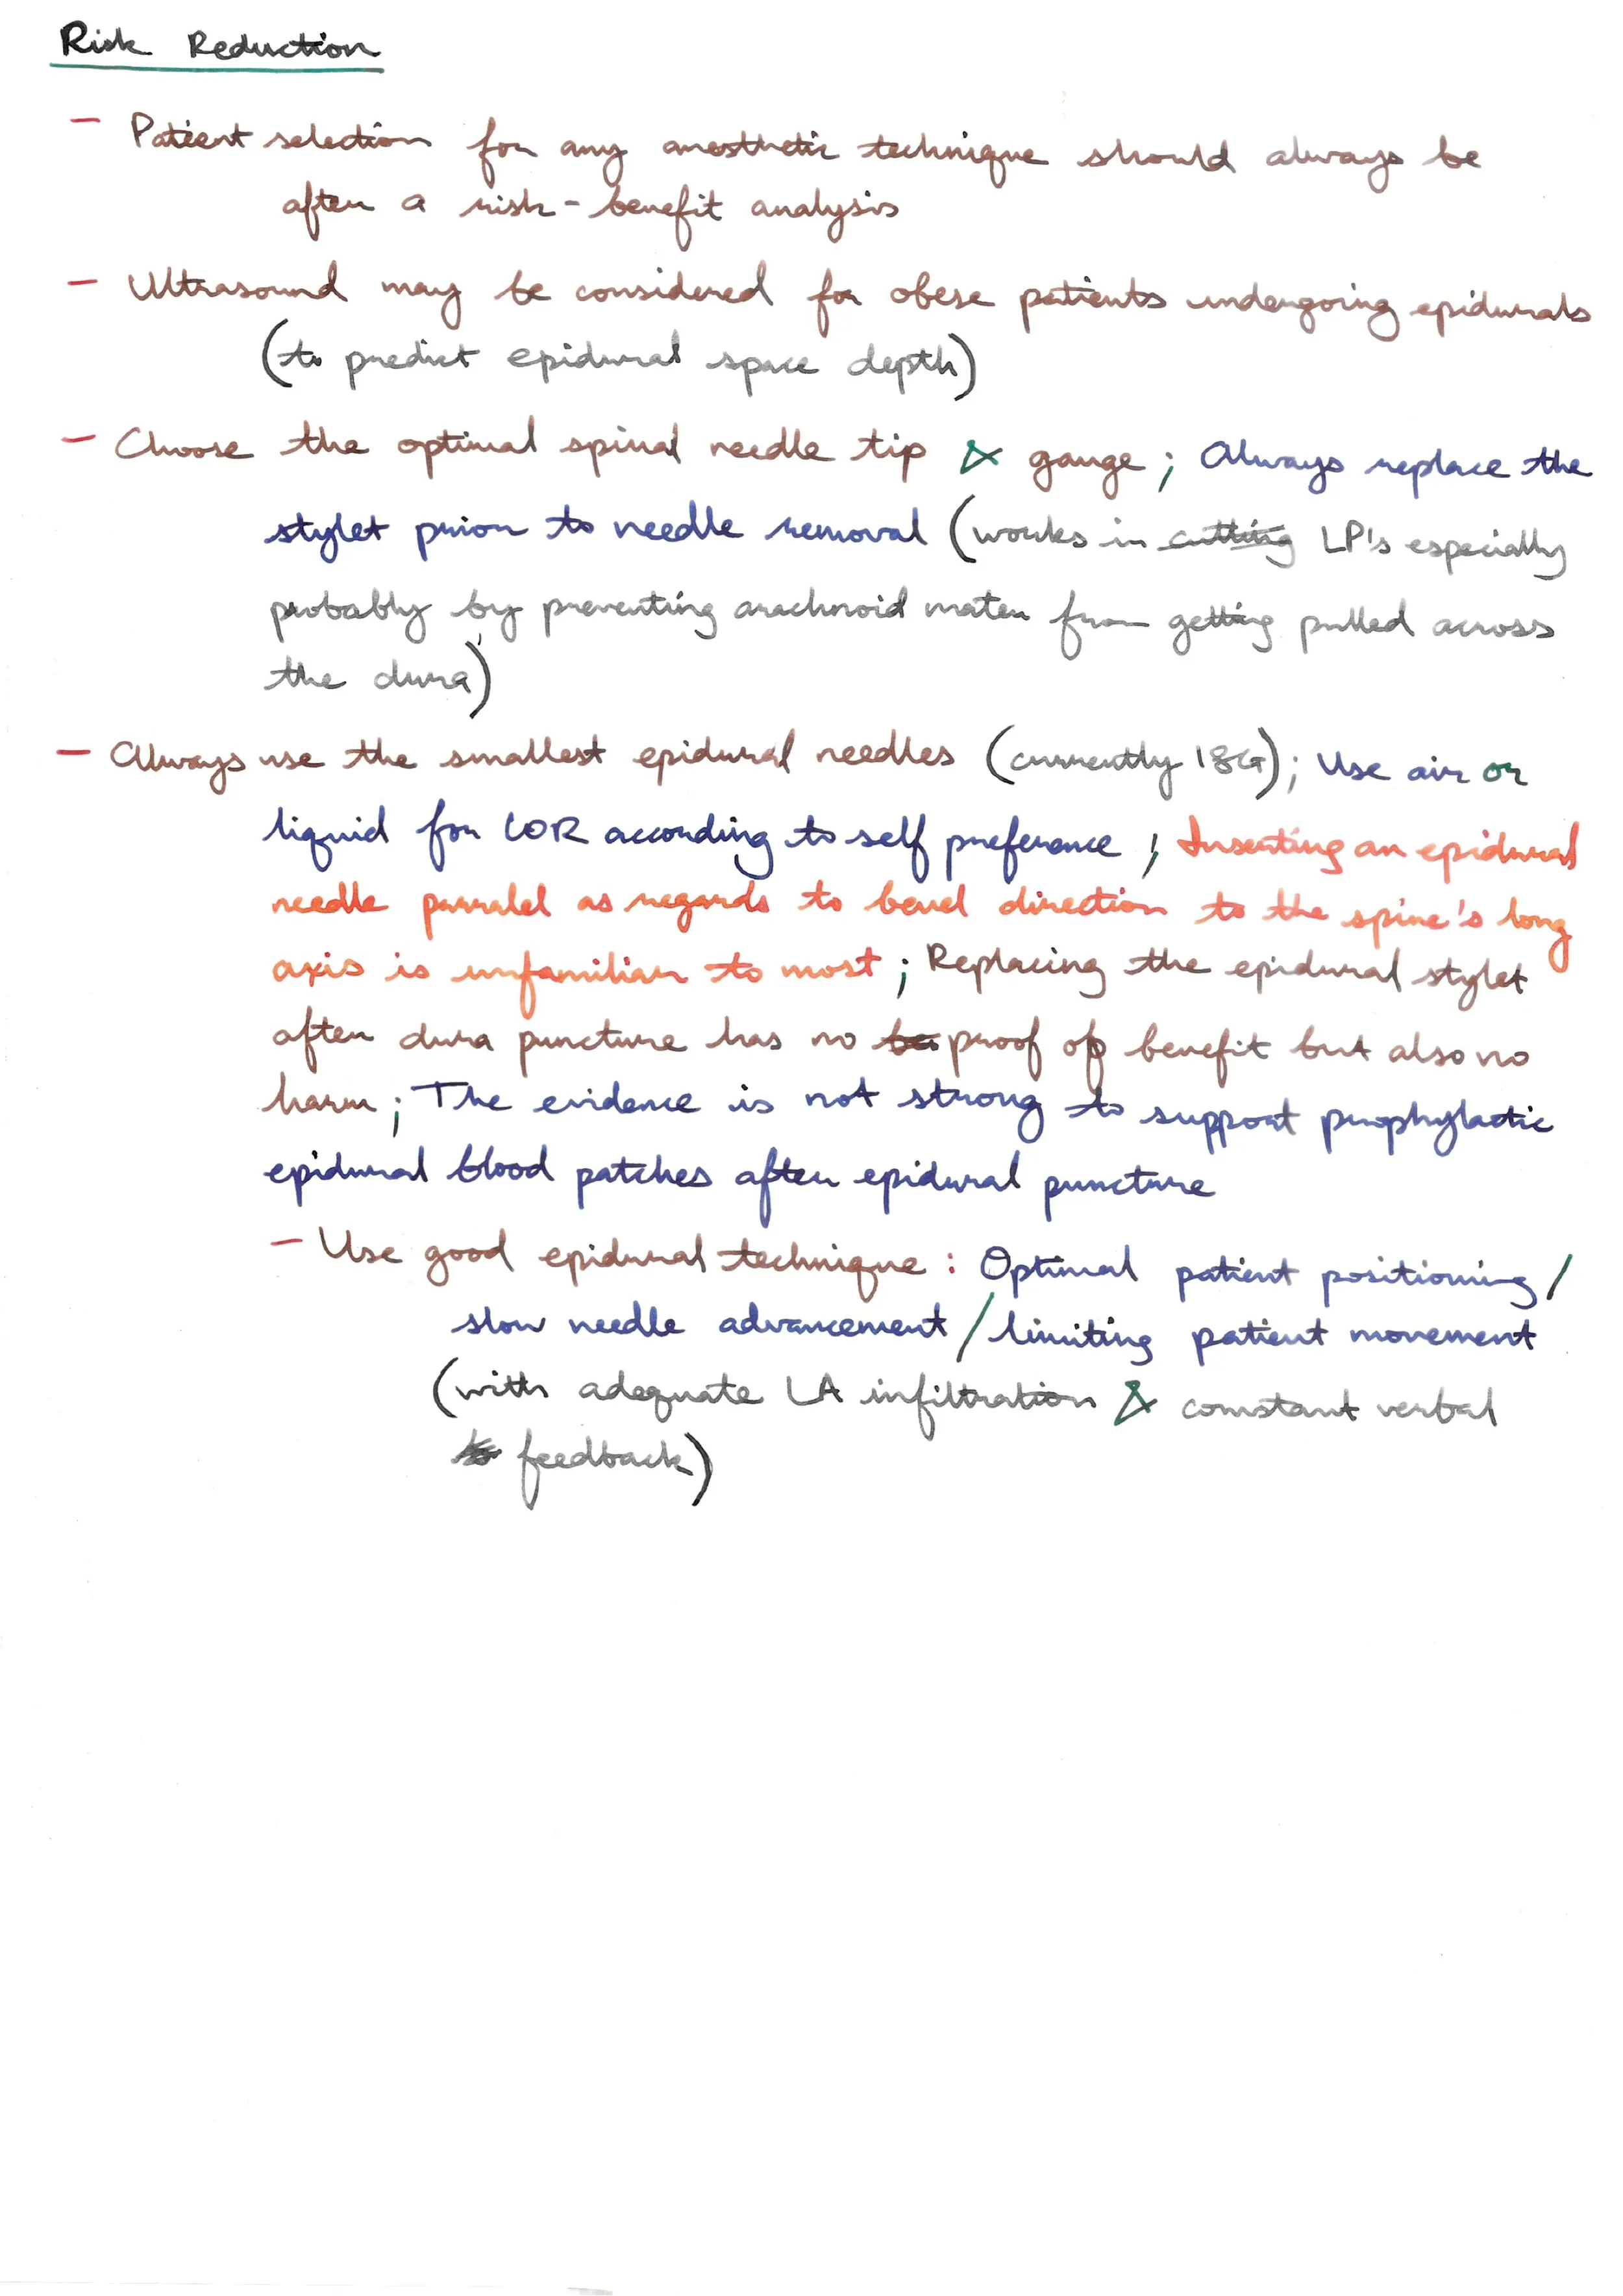 Risk Reduction
- Patient selection for any anesthetic technique should always be
after a risk-benefit analysis
- Ultrasound may be considered for obese patients undergoing epidurals
(to predict epidural space depth)
- Choose the optimal spinal needle tip & gauge; Always replace the
stylet prior to needle removal (works in cutting LP's especially
probably by preventing arachnoid mater from getting pulled across
the dura)
- Always use the smallest epidural needles (currently 18G); Use air or
liquid for LOR according to self preference; Inserting an epidural
needle parralel as regards to bevel direction to the spine's long
axis is unfamiliar to most; Replacing the epidural stylet
after dura puncture has no be proof of benefit but also no
harm; The evidence is not strong to support prophylactic
epidural blood patches after epidural puncture
- Use good epidural technique: Optimal patient positioning/
slow needle advancement/limiting patient movement
(with adequate LA infiltration & constant verbal
feedback)